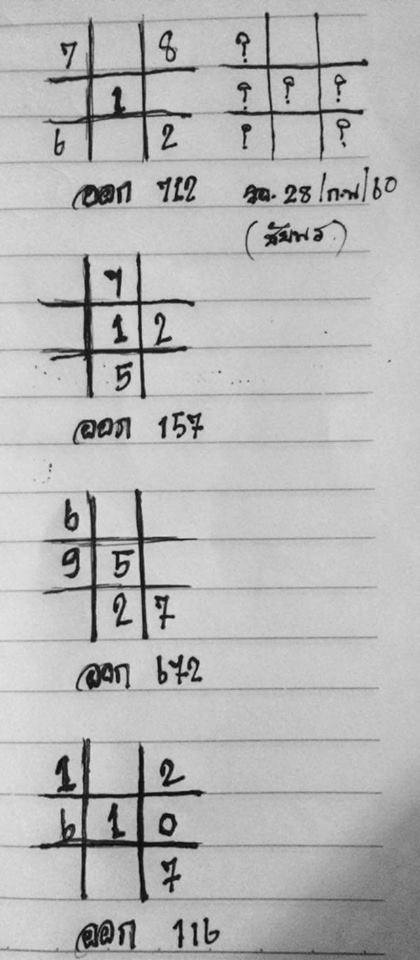 7 8 ?
1 ? ? ?
6 2 ? ?
ออก 712 28/ก.พ/60
(ชัยพร)
7
1 2
5
ออก 157
6
9 5
2 7
ออก 672
1 2
6 1 0
7
ออก 116